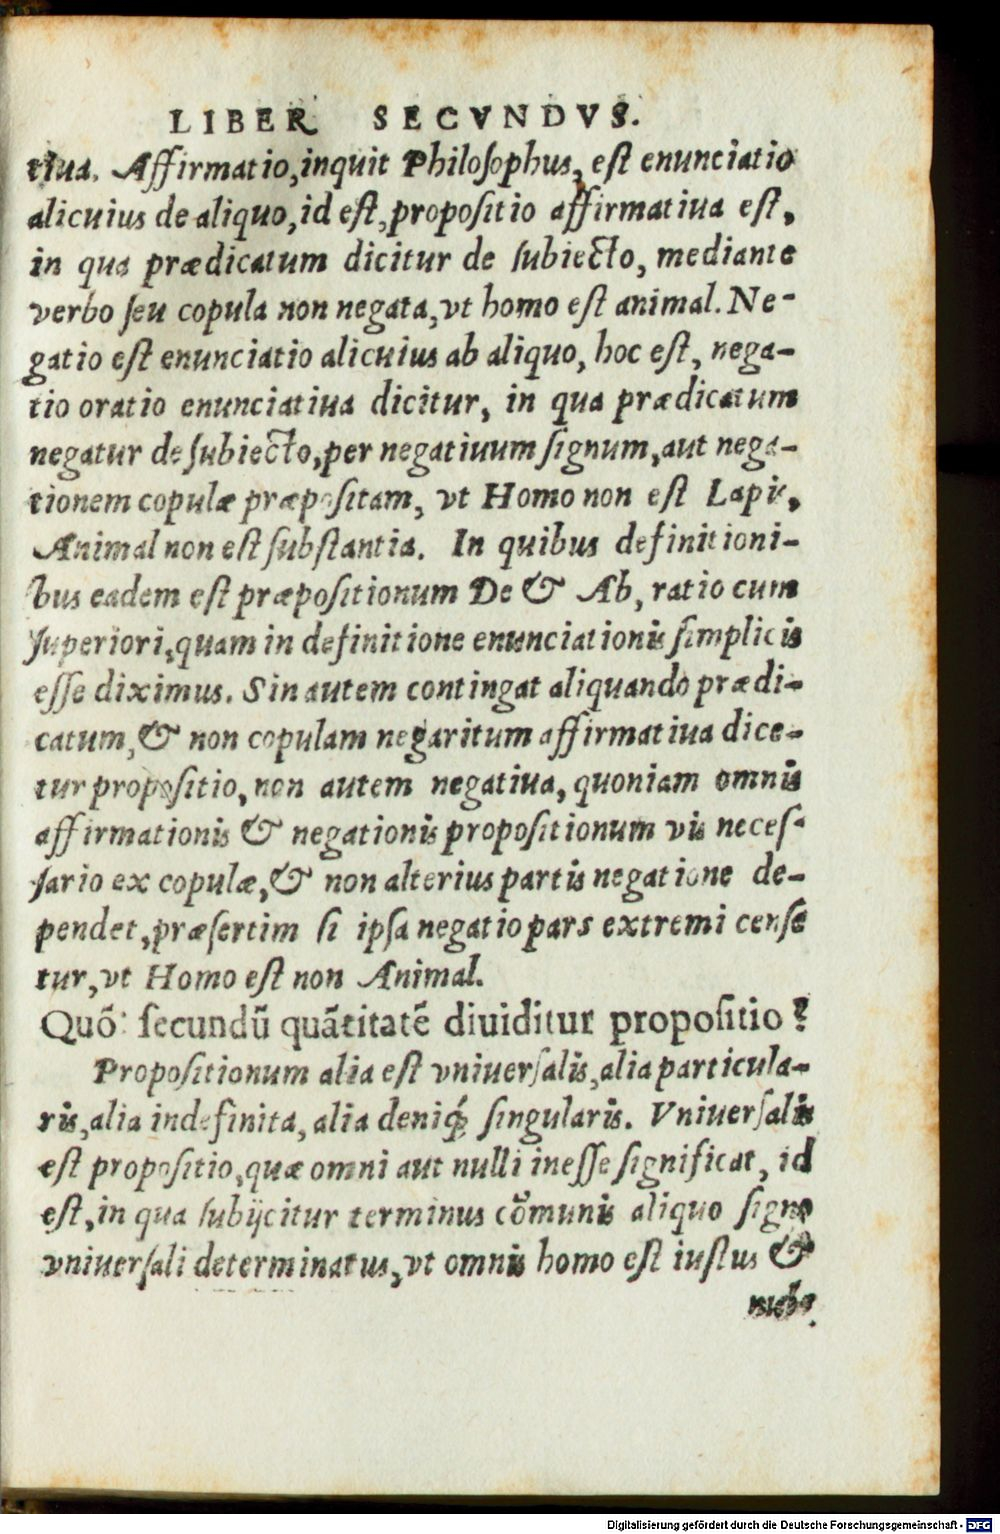 LIBER SECVNDVS.
tiua. Affirmatio, inquit Philosophus, est enunciatio
alicuius de aliquo, id est, propositio affirmatiua est,
in qua prædicatum dicitur de subiecto, mediante
verbo seu copula non negata, vt homo est animal. Ne-
gatio est enunciatio alicuius ab aliquo, hoc est, nega-
tio oratio enunciatiua dicitur, in qua prædicatum
negatur de subiecto, per negatiuum signum, aut nega-
tionem copulæ præpositam, vt Homo non est Lapis,
Animal non est substantia. In quibus definitioni-
bus eadem est præpositionum De & Ab, ratio cum
superiori, quam in definitione enunciationis simplicis
esse diximus. Sin autem contingat aliquando prædi-
catum, & non copulam negari tum affirmatiua dice-
tur propositio, non autem negatiua, quoniam omnis
affirmationis & negationis propositionum vis neces-
sario ex copulæ, & non alterius partis negatione de-
pendet, præsertim si ipsa negatio pars extremi cense
tur, vt Homo est non Animal.
Quō secundū quātitatē diuiditur propositio?
Propositionum alia est vniuersalis, alia particula-
ris, alia indefinita, alia deniq́; singularis. Vniuersalis
est propositio, quæ omni aut nulli inesse significat, id
est, in qua subijcitur terminus cōmunis aliquo signo
vniuersali determinatus, vt omnis homo est iustus &
Digitalisierung gefördert durch die Deutsche Forschungsgemeinschaft - DFG